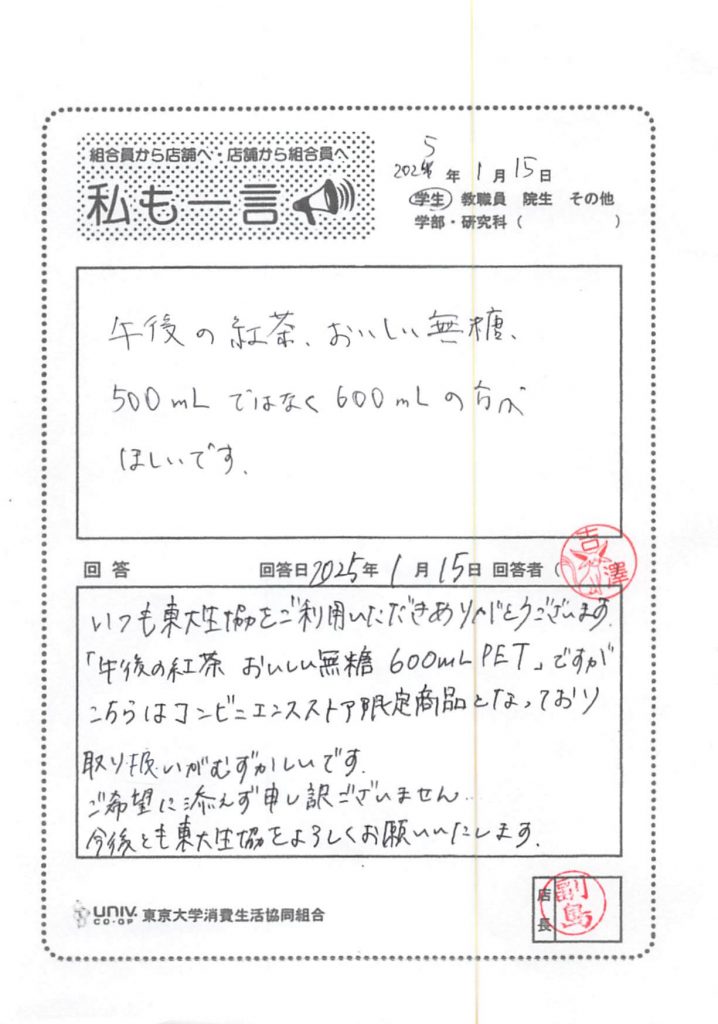 組合員から店舗へ・店舗から組合員へ
私も一言
5
2024年 1月15日
学生 教職員 院生 その他
学部・研究科（ ）
午後の紅茶、おいしい無糖、
500mLではなく600mLの方が
ほしいです。
回答 回答日2025年1月15日 回答者（
吉澤
いつも東大生協をご利用いただきありがとうございます。
「午後の紅茶 おいしい無糖 600mL PET」ですが
こちらはコンビニエンスストア限定商品となっており
取り扱いがむずかしいです。
ご希望に添えず申し訳ございません。
今後とも東大生協をよろしくお願いいたします。
UNIV. CO-OP 東京大学消費生活協同組合
店長
副島